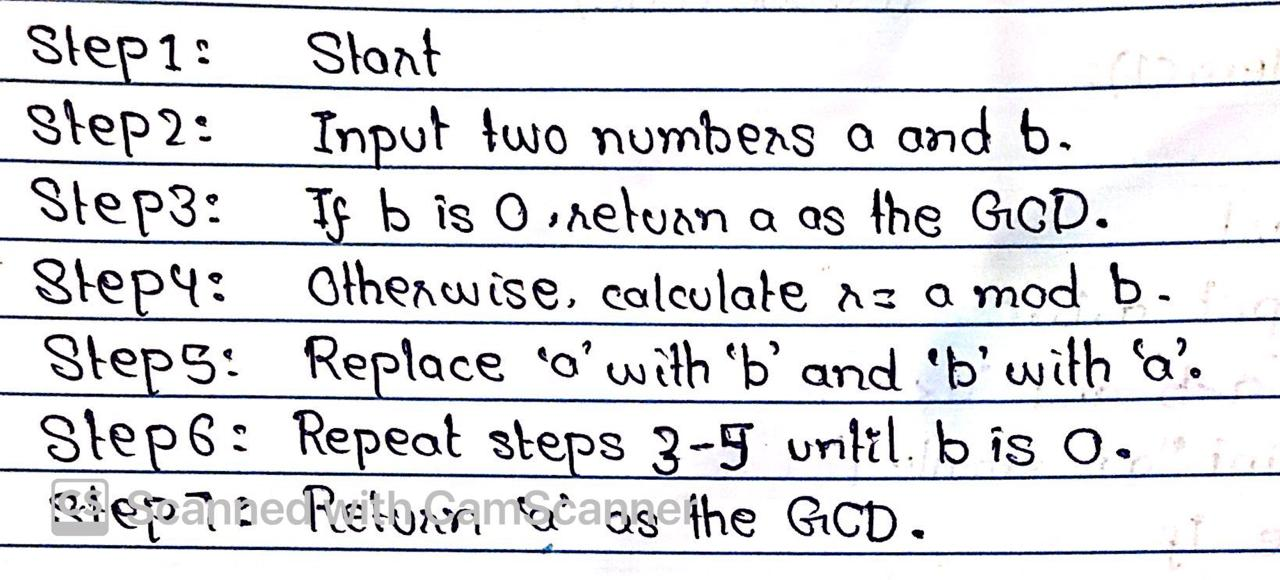 Step1: Start
Step2: Input two numbers a and b.
Step3: If b is 0, return a as the GCD.
Step4: Otherwise, calculate r = a mod b.
Step5: Replace 'a' with 'b' and 'b' with 'a'.
Step6: Repeat steps 3-5 until. b is 0.
Step7: Return 'a' as the GCD.
CS Scanned with CamScanner